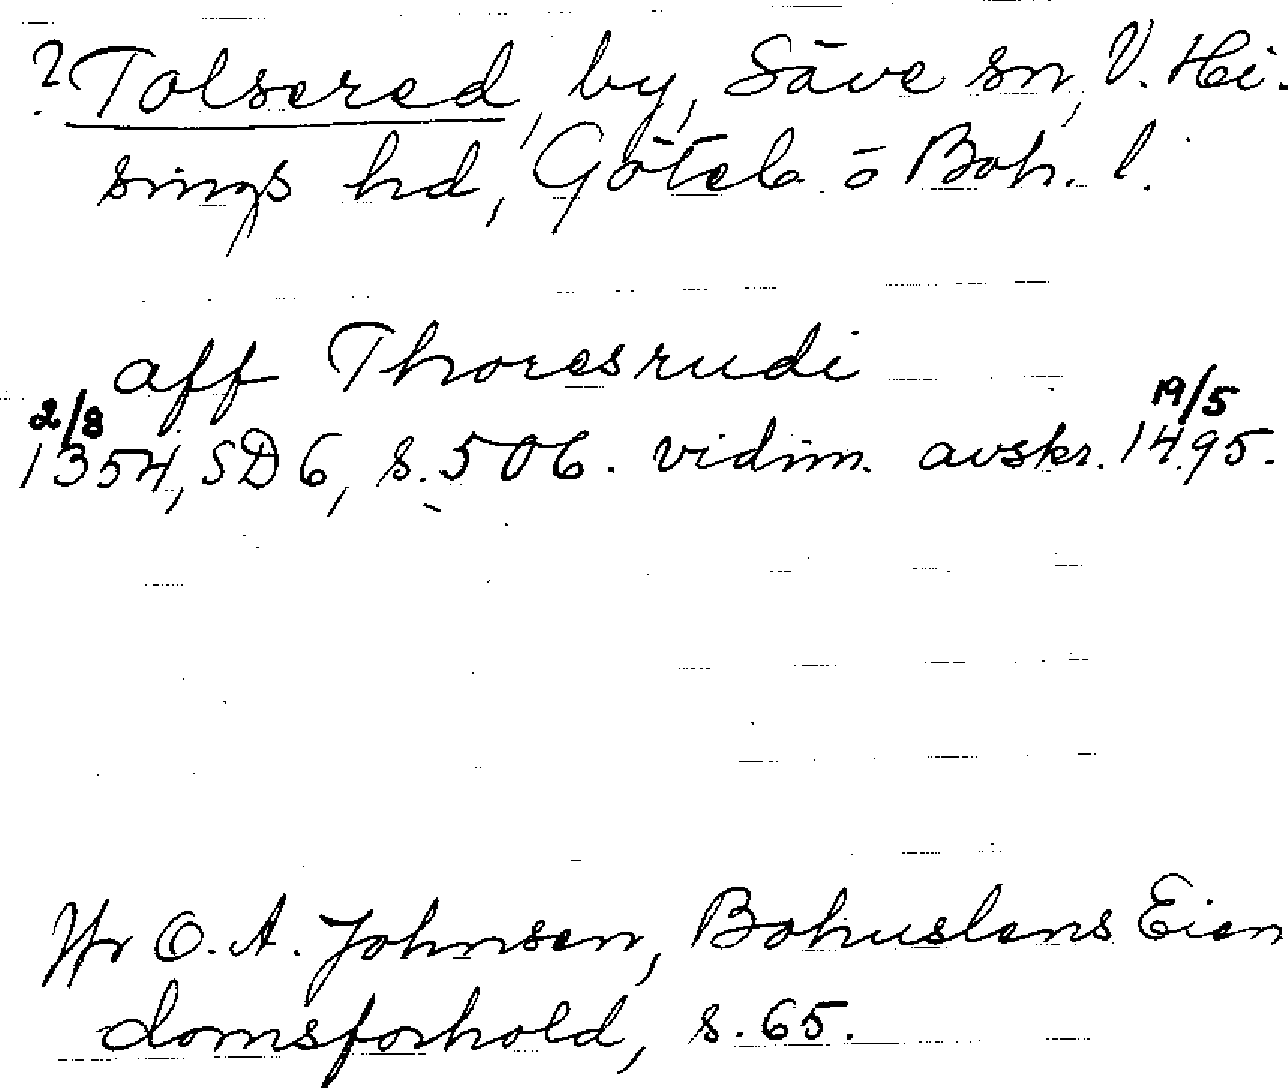 ? Tolsered, by, Säve sn, V. Hi-
sings hd, Göteb. o Boh. l.
aff Thoresrudi
2/8 19/5
1354, SD 6, s. 506. vidim. avskr. 1495.
Jfr O. A. Johnsen, Bohuslens Eien
domsforhold, s. 65.